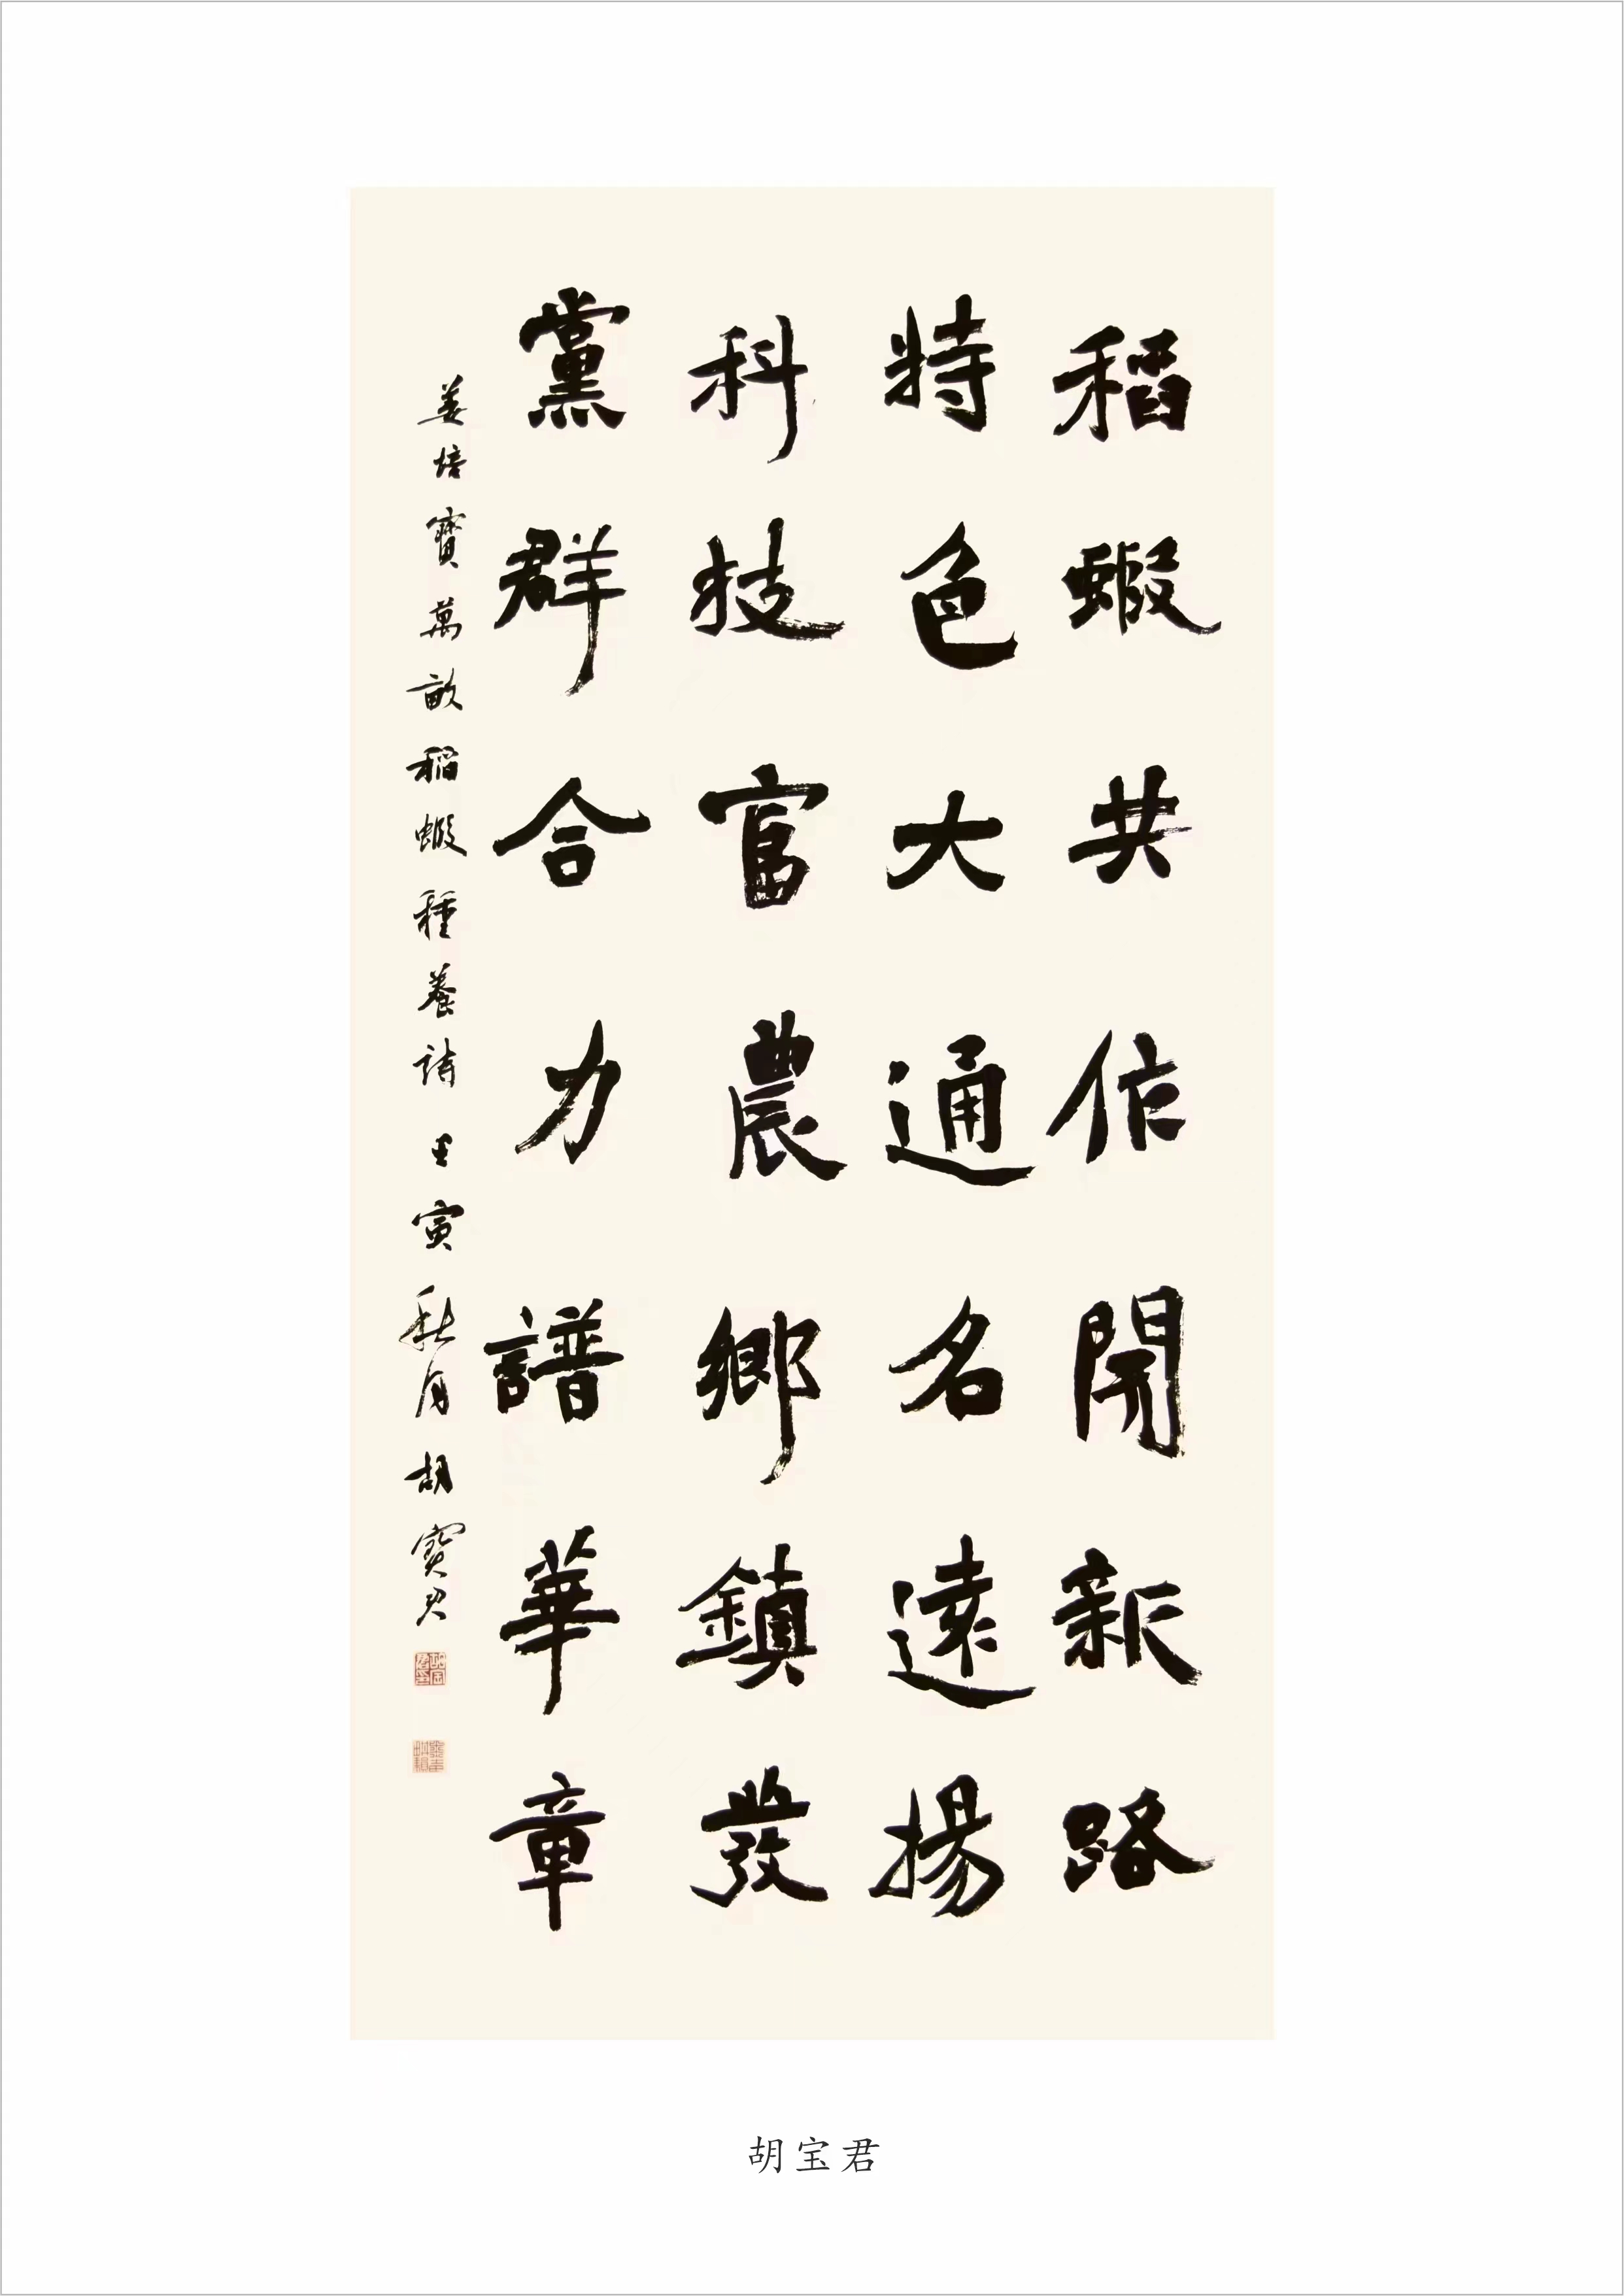 稻蝦共作開新路
特色大通名遠揚
科技富農鄉鎮發
黨群合力譜華章
姜培寶萬畝稻蝦種養詩 壬寅秋月胡寶君
胡宝君